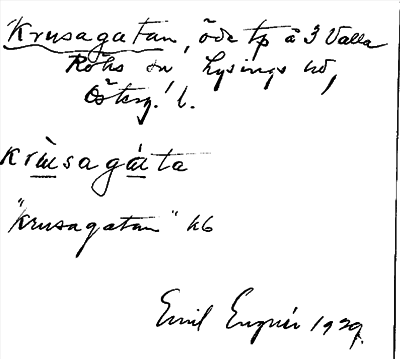 Krusagatan, öde tp å 3 Valla
Röks sn Lysings hd,
Österg. l.
krùsagáta
"Krusagatan" hb
Emil Engnér 1929.